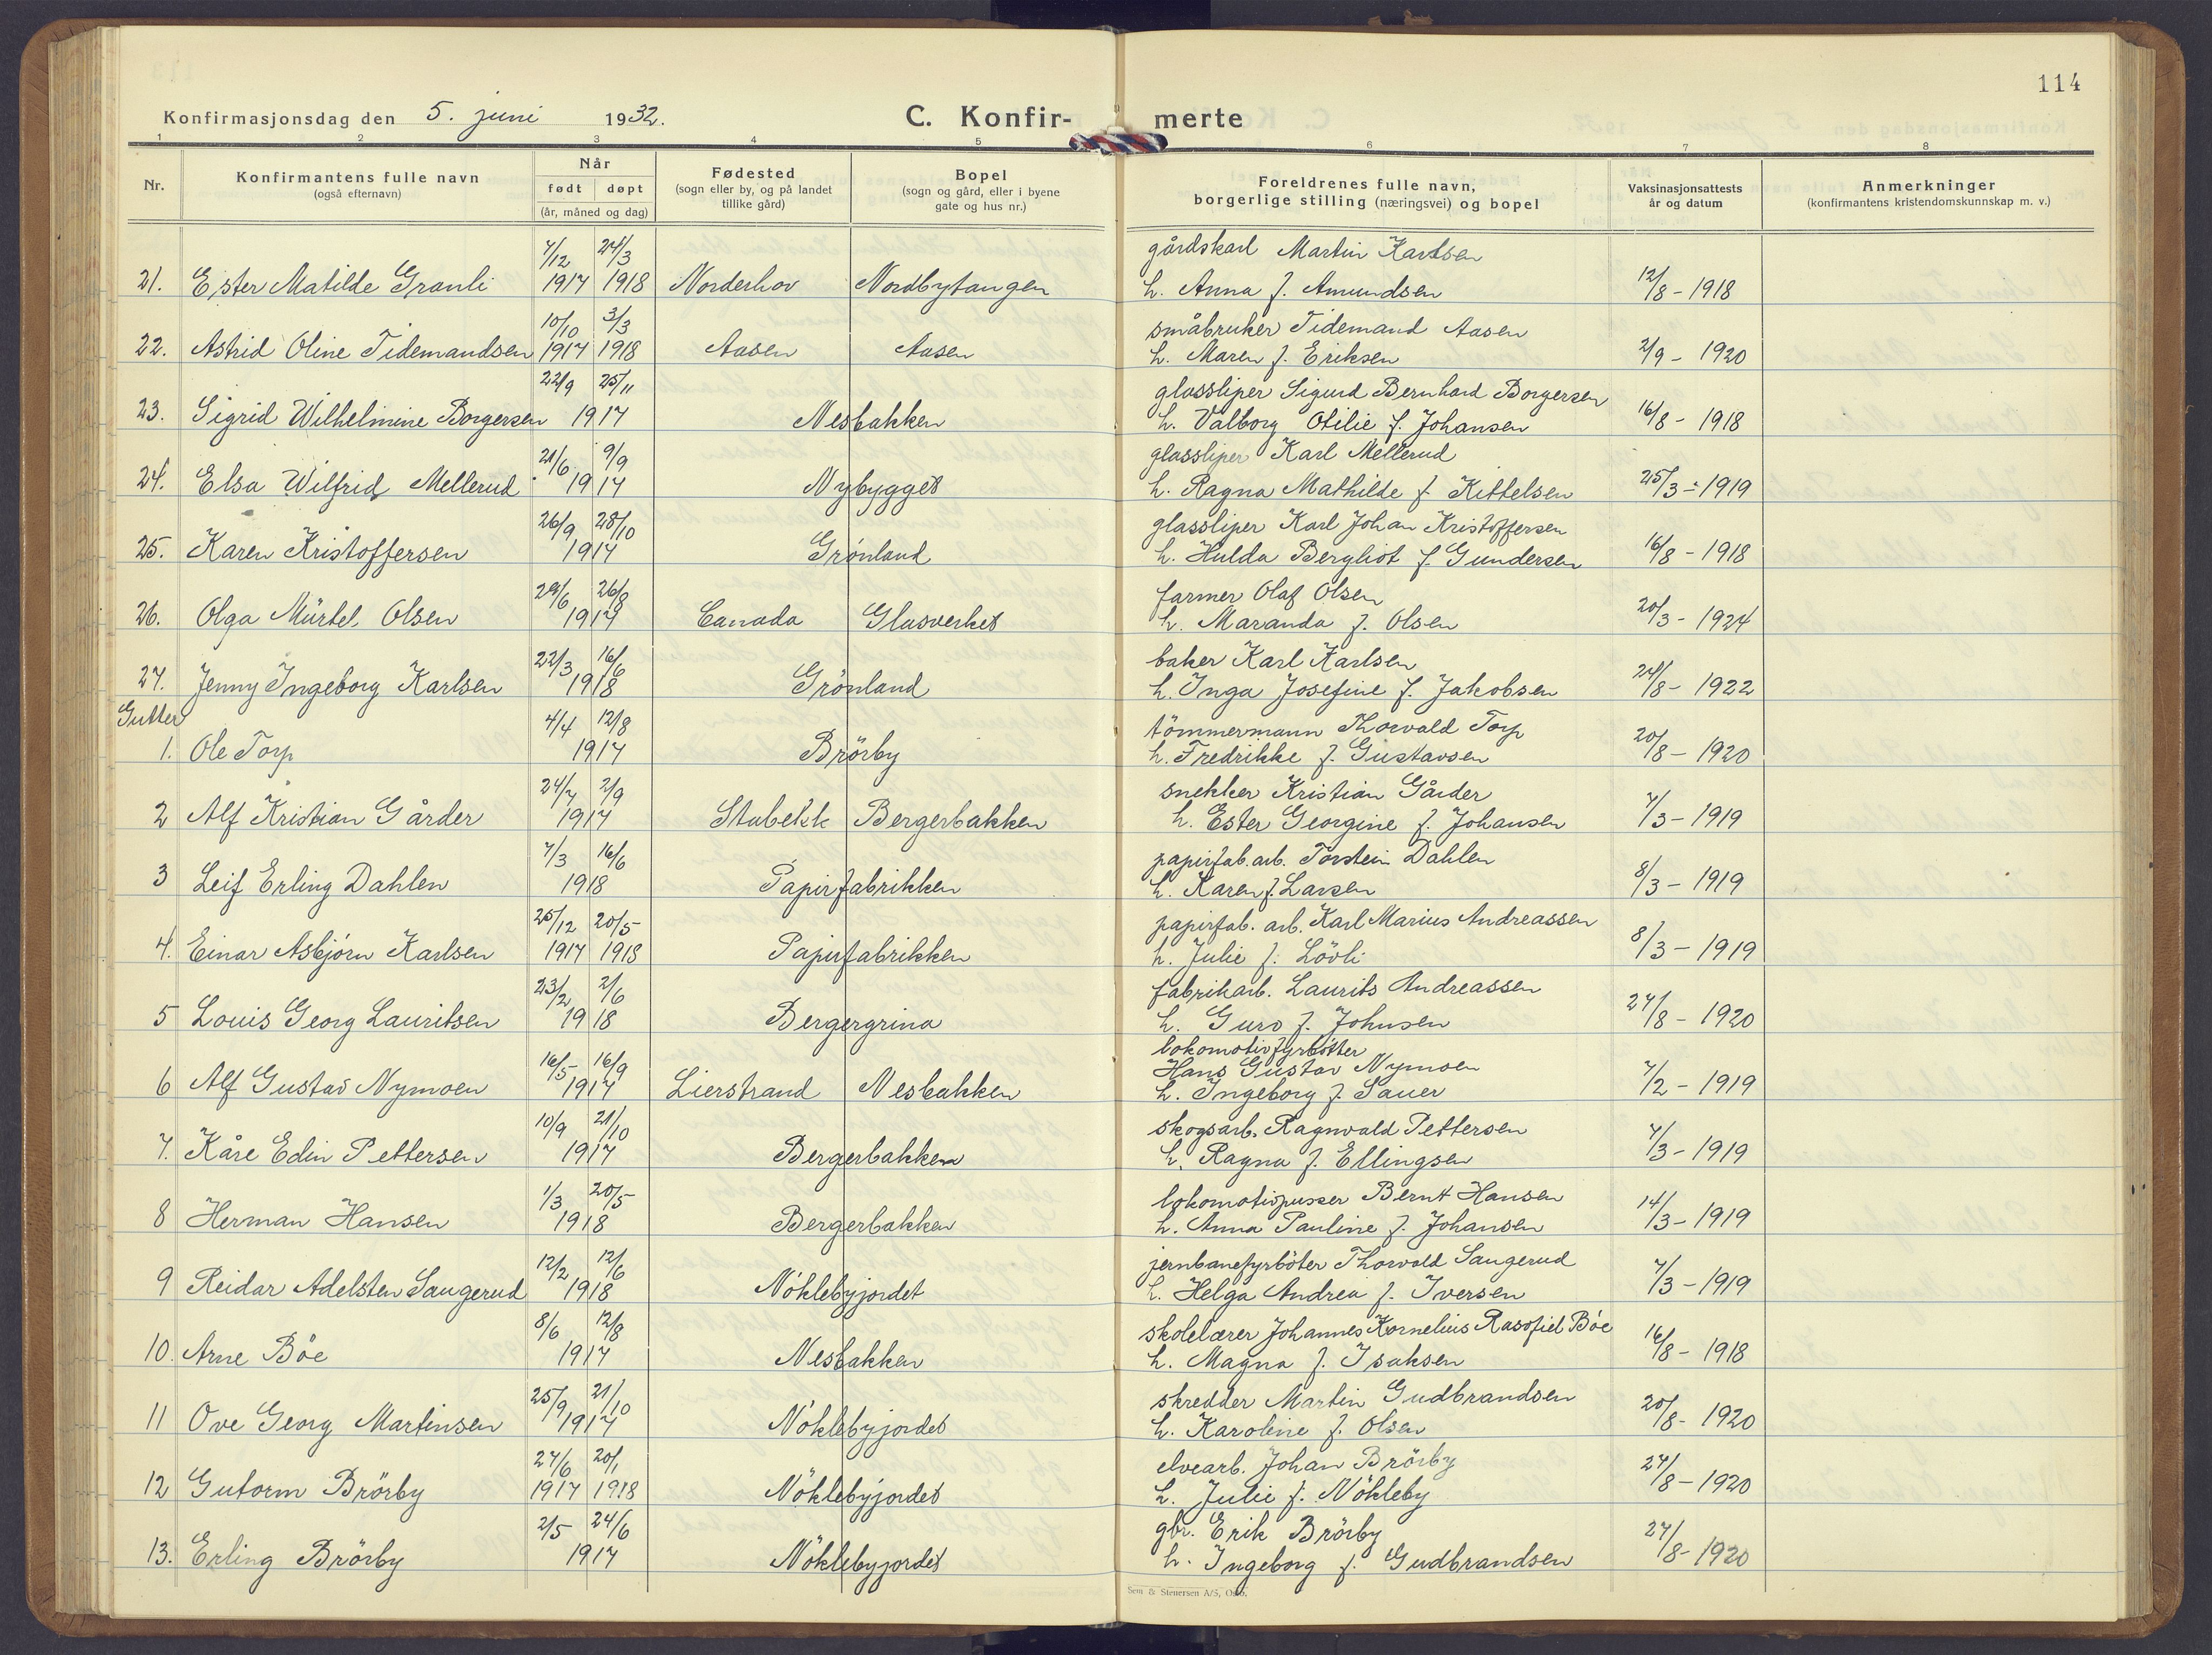 114
Konfirmasjonsdag den 5. juni 1932.
C. Konfir- merte
1 2 3 4 5 6 7 8
Nr.
Konfirmantens fulle navn
(også efternavn)
Når
født døpt
(år, måned og dag)
Fødested
(sogn eller by, og på landet
tillike gård)
Bopel
(sogn og gård, eller i byene
gate og hus nr.)
Foreldrenes fulle navn,
borgerlige stilling (næringsvei) og bopel
Vaksinasjonsattests
år og datum
Anmerkninger
(konfirmantens kristendomskunnskap m. v.)
7/12 24/3 gårdskarl Martin Karlsen
21. Ester Matilde Granli 1917 1918 Norderhov Nordbytangen h. Anna f. Amundsen 12/8 - 1918
10/10 3/3 småbruker Tidemand Aasen
22. Astrid Oline Tidemandsen 1917 1918 Aasen Aasen h. Maren f. Eriksen 2/9 - 1920
22/9 25/11 glassliper Sigurd Bernhard Borgersen
23. Sigrid Wilhelmine Borgersen 1917 Nesbakken h. Valborg Otilie f. Johansen 16/8 - 1918
21/6 9/9 glassliper Karl Mellerud
24. Elsa Wilfrid Mellerud 1917 Nybygget h. Ragna Mathilde f. Kittelsen 25/3 - 1919
26/9 28/10 glassliper Karl Johan Kristoffersen
25. Karen Kristoffersen 1917 Grønland h. Hulda Bergliot f. Gundersen 16/8 - 1918
29/6 26/8 farmer Olaf Olsen
26. Olga Mürtel Olsen 1917 Canada Glasverket h. Maranda f. Olsen 20/3 - 1924
22/3 16/6 baker Karl Karlsen
27. Jenny Ingeborg Karlsen 1918 Grönland h. Inga Josefine f. Jakobsen 24/8 - 1922
Gutter 4/4 12/8 tömmermann Thorvald Torp
1. Ole Torp 1917 Brörby h. Fredrikke f. Gustavsen 20/8 - 1920
24/7 2/9 snekker Kristian Gårder
2 Alf Kristian Gårder 1917 Stabekk Bergerbakken h. Ester Georgine f. Johansen 7/3 - 1919
7/3 16/6 papirfab. arb. Torstein Dahlen
3 Leif Erling Dahlen 1918 Papirfabrikken h. Karen f. Larsen 8/3 - 1919
25/12 20/5 papirfab. arb. Karl Marius Andreassen
4. Einar Asbjørn Karlsen 1917 1918 Papirfabrikken h. Julie f. Lövli 8/3 - 1919
23/2 2/6 fabrikarb. Laurits Andreassen
5 Louis Georg Lauritsen 1918 Bergergrina h. Guro f. Johnsen 27/8 - 1920
lokomotivfyrbøtter
16/5 16/9 Hans Gustav Nymoen
6 Alf Gustav Nymoen 1917 Lierstrand Nesbakken h. Ingeborg f. Sauer 7/2 - 1919
10/9 21/10 skogsarb. Ragnvald Pettersen
7. Kåre Edin Pettersen 1917 Bergerbakken h. Ragna f. Ellingsen 7/3 - 1919
1/3 20/5 lokomotivpusser Bernt Hansen
8 Herman Hansen 1918 Bergerbakken h. Anna Pauline f. Johansen 14/3 - 1919
12/2 12/6 jernbanefyrböter Thorvald Saugerud
9 Reidar Adelsten Saugerud 1918 Nöklebyjordet h. Helga Andrea f. Iversen 7/3 - 1919
8/6 12/8 skolelærer Johannes Kornelius Bøe
10. Arne Bøe 1917 Nesbakken h. Magna f. Isaksen 16/8 - 1918
25/9 21/10 skredder Martin Gudbrandsen
11 Ove Georg Martinsen 1917 Nöklebyjordet h. Karoline f. Olsen 20/8 - 1920
27/6 20/1 elvearb. Johan Brörby
12 Gutorm Brörby 1917 1918 Nöklebyjordet h. Julie f. Nökleby 27/8 - 1920
2/5 24/6 gbr. Erik Brörby
13. Erling Brörby 1917 Nöklebyjordet h. Ingeborg f. Gudbrandsen 27/8 - 1920
Sem & Stenersen A/S, Oslo.